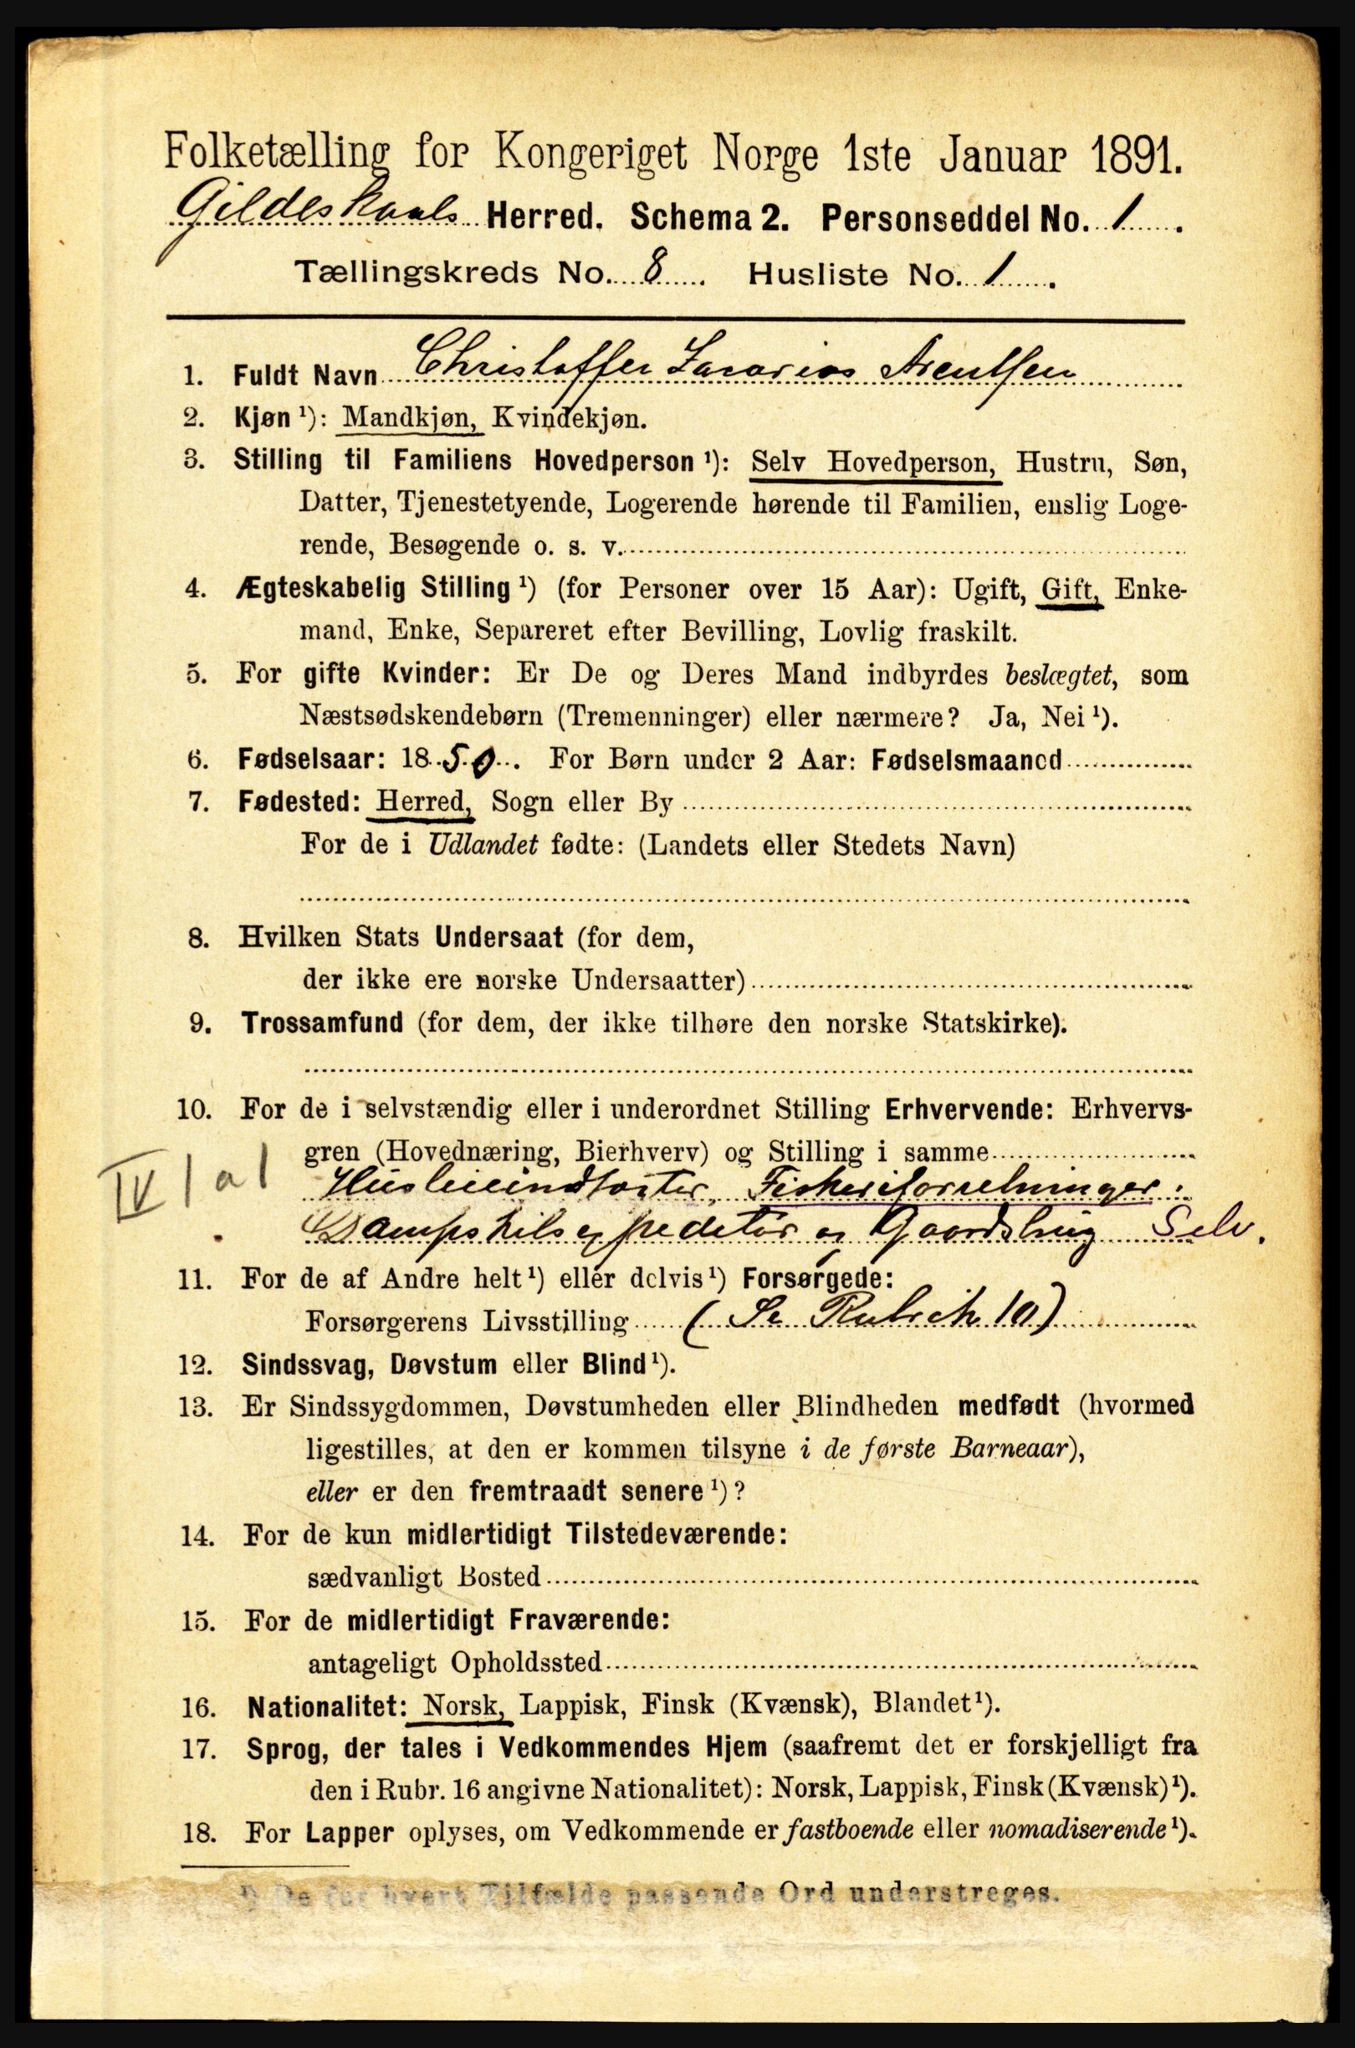 Folketælling for Kongeriget Norge 1ste Januar 1891.
Gildeskaals Herred. Schema 2. Personseddel No. 1.
Tællingskreds No. 8. Husliste No. 1.
1. Fuldt Navn Christoffer Zacarias Arentsen
2. Kjøn ¹): Mandkjøn, Kvindekjøn.
3. Stilling til Familiens Hovedperson ¹): Selv Hovedperson, Hustru, Søn,
Datter, Tjenestetyende, Logerende hørende til Familien, enslig Loge-
rende, Besøgende o. s. v.
4. Ægteskabelig Stilling ¹) (for Personer over 15 Aar): Ugift, Gift, Enke-
mand, Enke, Separeret efter Bevilling, Lovlig fraskilt.
5. For gifte Kvinder: Er De og Deres Mand indbyrdes beslægtet, som
Næstsødskendebørn (Tremenninger) eller nærmere? Ja, Nei ¹).
6. Fødselsaar: 1850. For Børn under 2 Aar: Fødselsmaaned
7. Fødested: Herred, Sogn eller By
For de i Udlandet fødte: (Landets eller Stedets Navn)
8. Hvilken Stats Undersaat (for dem,
der ikke ere norske Undersaatter)
9. Trossamfund (for dem, der ikke tilhøre den norske Statskirke).
10. For de i selvstændig eller i underordnet Stilling Erhvervende: Erhvervs-
gren (Hovednæring, Bierhverv) og Stilling i samme
IV 1 a 1
Husleieindtægter, Fiskeriforretninger.
Dampskibsexpeditør og Gaardsbrug Selv.
11. For de af Andre helt ¹) eller delvis ¹) Forsørgede:
Forsørgerens Livsstilling (Se Rubrik 10)
12. Sindssvag, Døvstum eller Blind ¹).
13. Er Sindssygdommen, Døvstumheden eller Blindheden medfødt (hvormed
ligestilles, at den er kommen tilsyne i de første Barneaar),
eller er den fremtraadt senere ¹)?
14. For de kun midlertidigt Tilstedeværende:
sædvanligt Bosted
15. For de midlertidigt Fraværende:
antageligt Opholdssted
16. Nationalitet: Norsk, Lappisk, Finsk (Kvænsk), Blandet ¹).
17. Sprog, der tales i Vedkommendes Hjem (saafremt det er forskjelligt fra
den i Rubr. 16 angivne Nationalitet): Norsk, Lappisk, Finsk (Kvænsk) ¹).
18. For Lapper oplyses, om Vedkommende er fastboende eller nomadiserende ¹).
¹) De for hvert Tilfælde passende Ord understreges.